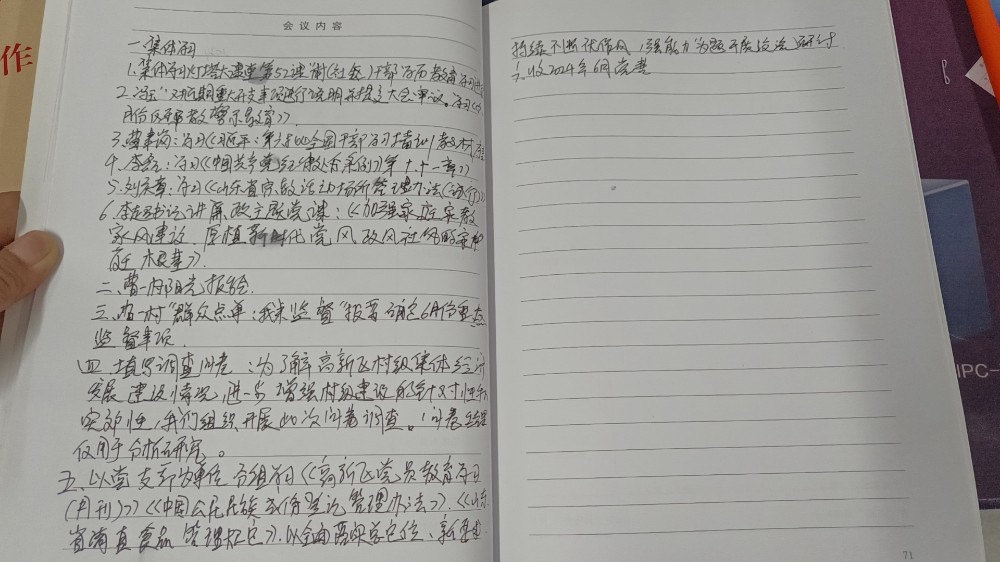 作
会议内容
一.集体学习
1.集体学习灯塔大课堂第52课《社会》干部学历教育学习
2. 对近期重大开支事项进行说明并提交大会审议。学习《
月份反邪教警示教育》》
3. 学习《习近平:第六批全国干部学习培训教材
4. 李 :学习《中国共产党纪律处分条例》第十、十一章》
5.刘 :学习《山东省宗教活动场所管理办法(试行)》
6.李 书记讲廉政主题党课:《加强家庭家教
家风建设 厚植新时代党风政风社风的家庭
根基》.
二、曹一村阳光报告.
三、曹一村"群众点单:我来监督"报看 确定6月份重点
监督事项.
四.填写调查问卷:为了解高新区村级集体经济
发展建设情况,进一步增强村级建设的针对性和
实效性,我们组织开展此次问卷调查。问卷结果
仅用于分析研究。
五、以党支部为单位 分组学习《高新区党员教育学习
(月刊)》《中国公民民族成份登记管理办法》.《山东
省清真食品管理规定》.以全面 新
持续不断优作风,强能力"为题开展交流研讨
六、收2024年6月党费
71
IPC-